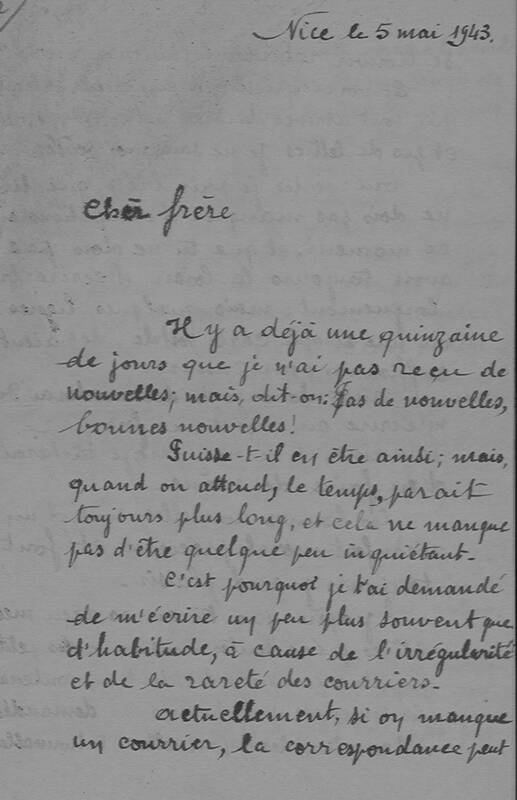 Nice le 5 mai 1943.
Cher frère
Il y a déjà une quinzaine
de jours que je n'ai pas reçu de
nouvelles; mais, dit-on: Pas de nouvelles,
bonnes nouvelles!
Puisse-t-il en être ainsi; mais,
quand on attend, le temps, parait
toujours plus long, et cela ne manque
pas d'être quelque peu inquiétant.
C'est pourquoi je t'ai demandé
de m'écrire un peu plus souvent que
d'habitude, à cause de l'irrégularité
et de la rareté des courriers.
Actuellement, si on manque
un courrier, la correspondance peut